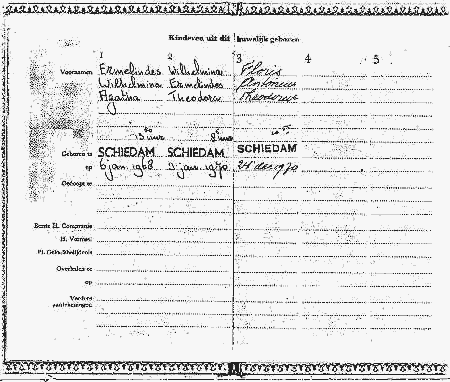 Kinderen uit dit huwelijk geboren
1 2 3 4 5
Voornamen Ermelindes Wilhelmina Floris
Wilhelmina Ermelindes Antonius
Agatha Theodora Theodorus
Geboren te SCHIEDAM SCHIEDAM SCHIEDAM
op 6 jan. 1968 3 jan. 1970 24 dec 1970
Gedoopt te
op
Eerste H. Communie
H. Vormsel
Overleden te
op
Verdere
aantekeningen